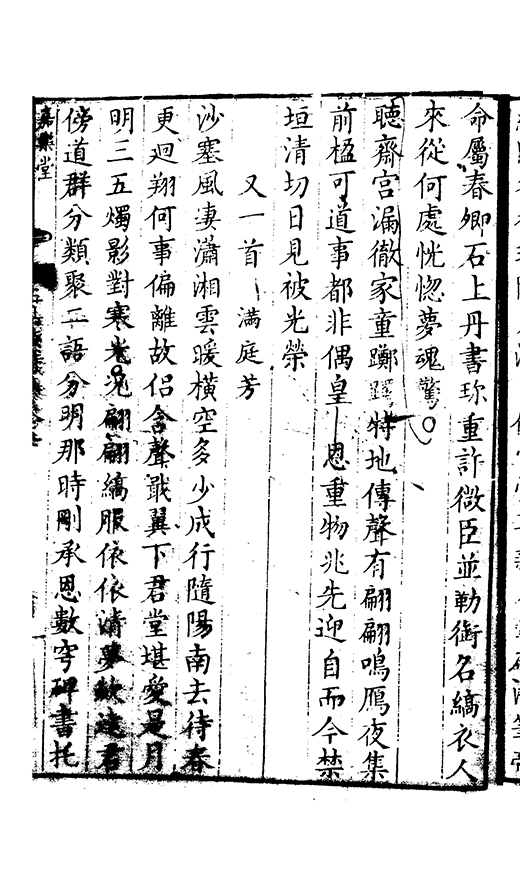 命屬春卿石上丹書珎重許微臣並勒銜名縞衣人
來從何處恍惚夢魂驚
聽齋宮漏徹家童躑躅特地傳聲有翩翩鳴鴈夜集
前楹可道事都非偶皇恩重物兆先迎自而今禁
垣清切日見被光榮
又一首 滿庭芳
沙塞風凄瀟湘雲暖橫空多少成行隨陽南去待春
更迴翔何事偏離故侣含聲戢翼下君堂堪愛是月
明三五燭影對寒光 翩翩縞服依依清夢 君
傍道群分類聚二語分明那時剛承恩數穹碑書托
嘉樂堂